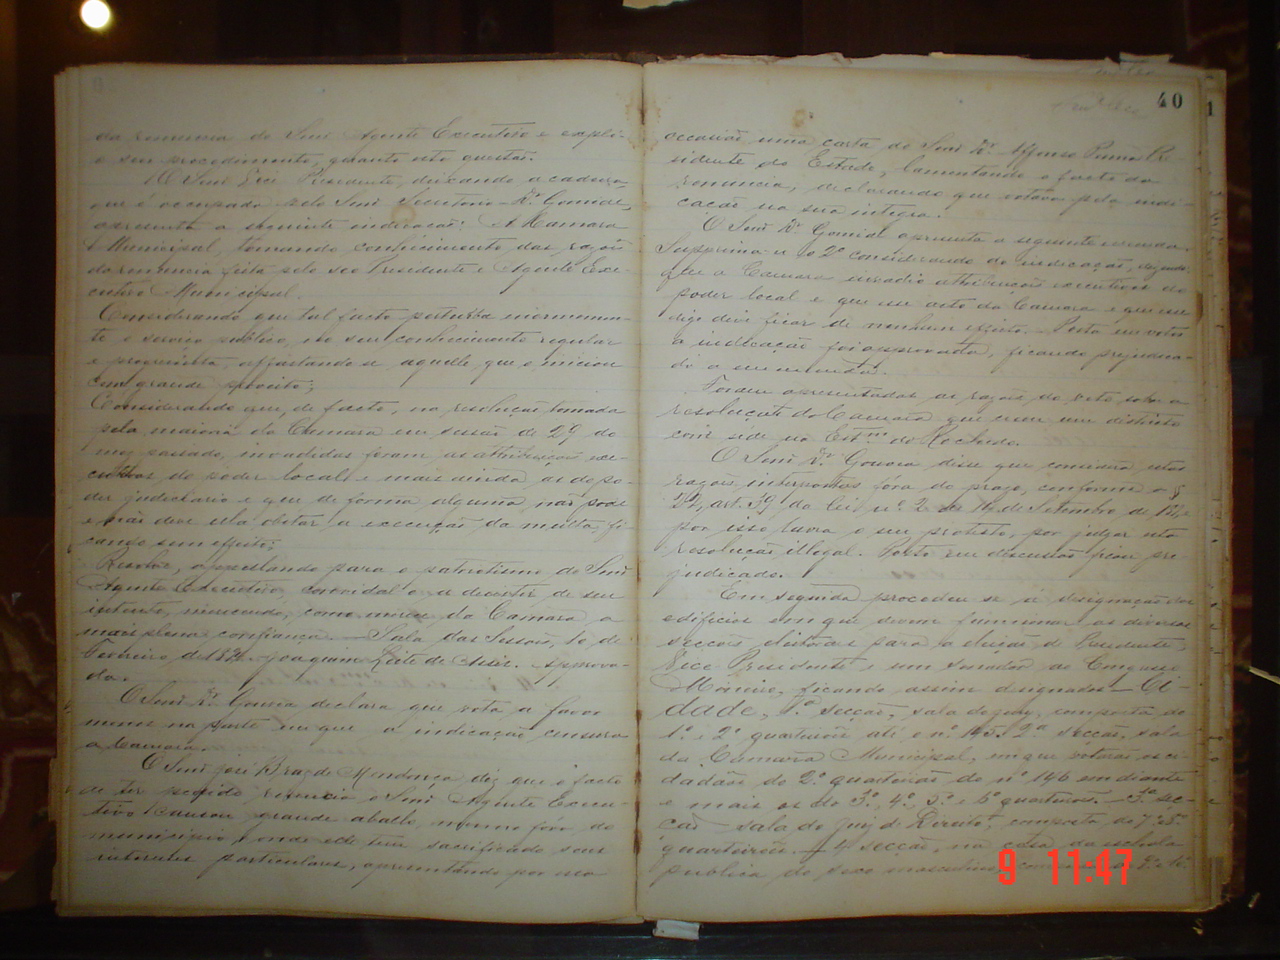 da renuncia do Senr Agente Executivo e expli-
o seu procedimento, quanto esta questão.
O Senr Vice Presidente, deixando a cadeira,
que é occupada pelo Senr Secretario Dr. Gomide,
apresenta a seguinte indicação: A Camara
Municipal, tomando conhecimento das razões
da renuncia feita pelo seo Presidente e Agente Exe-
cutivo Municipal.
Considerando que tal facto perturba enormemen-
te o serviço publico, no seu conhecimento regular
e progressista, affastando-se aquelle, que o iniciou
com grande proveito;
Considerando que, de facto, na resolução tomada
pela maioria da Camara em sessão de 29 do
mez passado, invadidas foram as attribuições exe-
cutivas do poder local e mais ainda as do po-
der judiciario e que de forma alguma não pode
e não deve ella obstar a execução da multa, fi-
cando sem effeito;
Resolve, appellando para o patriotismo do Senr
Agente Executivo, convidal-o a desistir de seu
intento, merecendo, como merece da Camara a
mais plena confiança. — Sala das Sessões, de
Fevereiro de Joaquim Leite de Assis. Approva-
da.
O Senr Dr. Gouvea declara que vota a favor
menos na parte em que a indicação censura
a Camara.
O Senr José Braz de Mendonça diz que o facto
de ter pedido renuncia o Senr Agente Execu-
tivo causou grande aballo, mesmo fóra do
municipio, onde elle tem sacrificado seus
interesses particulares, apresentando por essa
40
occasião uma carta do Senr Dr. Affonso Penna Pre
sidente do Estado, lamentando o facto da
renuncia, declarando que votava pela indi-
cação na sua integra.
O Senr Dr. Gomide apresenta a seguinte emenda.
Supprima-se o 2º considerando da indicação, dizendo
que a Camara invadio attribuições executivas do
poder local e que esse acto da Camara e que esse
deve ficar de nenhum effeito. — Posta em votos
a indicação foi approvada, ficando prejudica-
da a emenda.
Foram apresentadas as razões do veto sobre a
resolução da Camara que creou um districto
com sede na Estm. do Rochedo.
O Senr Dr. Gouvea disse que considera estas
razões fóra do praso, conforme o §
22, art. 39 da lei nº 2 de 14 de Setembro de
por isso lavra o seu protesto, por julgar esta
resolução illegal. Posto em discussão ficou pre
judicado.
Em seguida procedeu-se á designação dos
edificios em que devem funccionar as diversas
secções eleitoraes para a eleição de Presidente,
Vice Presidente e um Senador ao Congresso
Mineiro, ficando assim designados — Ci-
dade, 1ª secção, sala do jury, composta do
1º e 2º quarteirão até o nº 145. 2ª secção, sala
da Camara Municipal, em que votarão os ci-
dadãos do 2º quarteirão do nº 146 em diante
e mais os do 3º, 4º, 5º e 6º quarteirões. — 3ª sec-
ção — sala do juiz de Direito, composta do 7º e 8º
quarteirões. — 4ª secção, na casa da eschola
publica do sexo masculino,
9 11:47